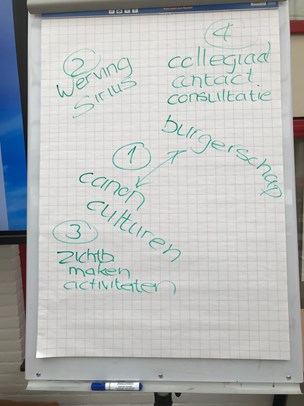 ②
werving
Sirius
④
collegiaal
contact.
consultatie
burgerschap
①
canon
culturen
③
zichtb
maken
activiteiten